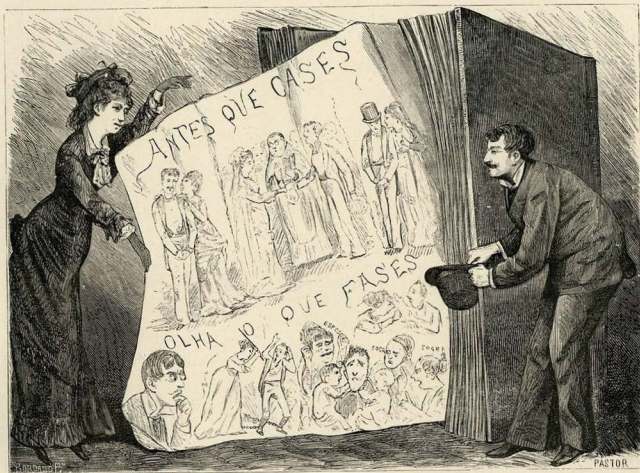 ANTES QUE CASES
OLHA O QUE FASES
SOGRO
SOGRA
BORDALO P.
PASTOR